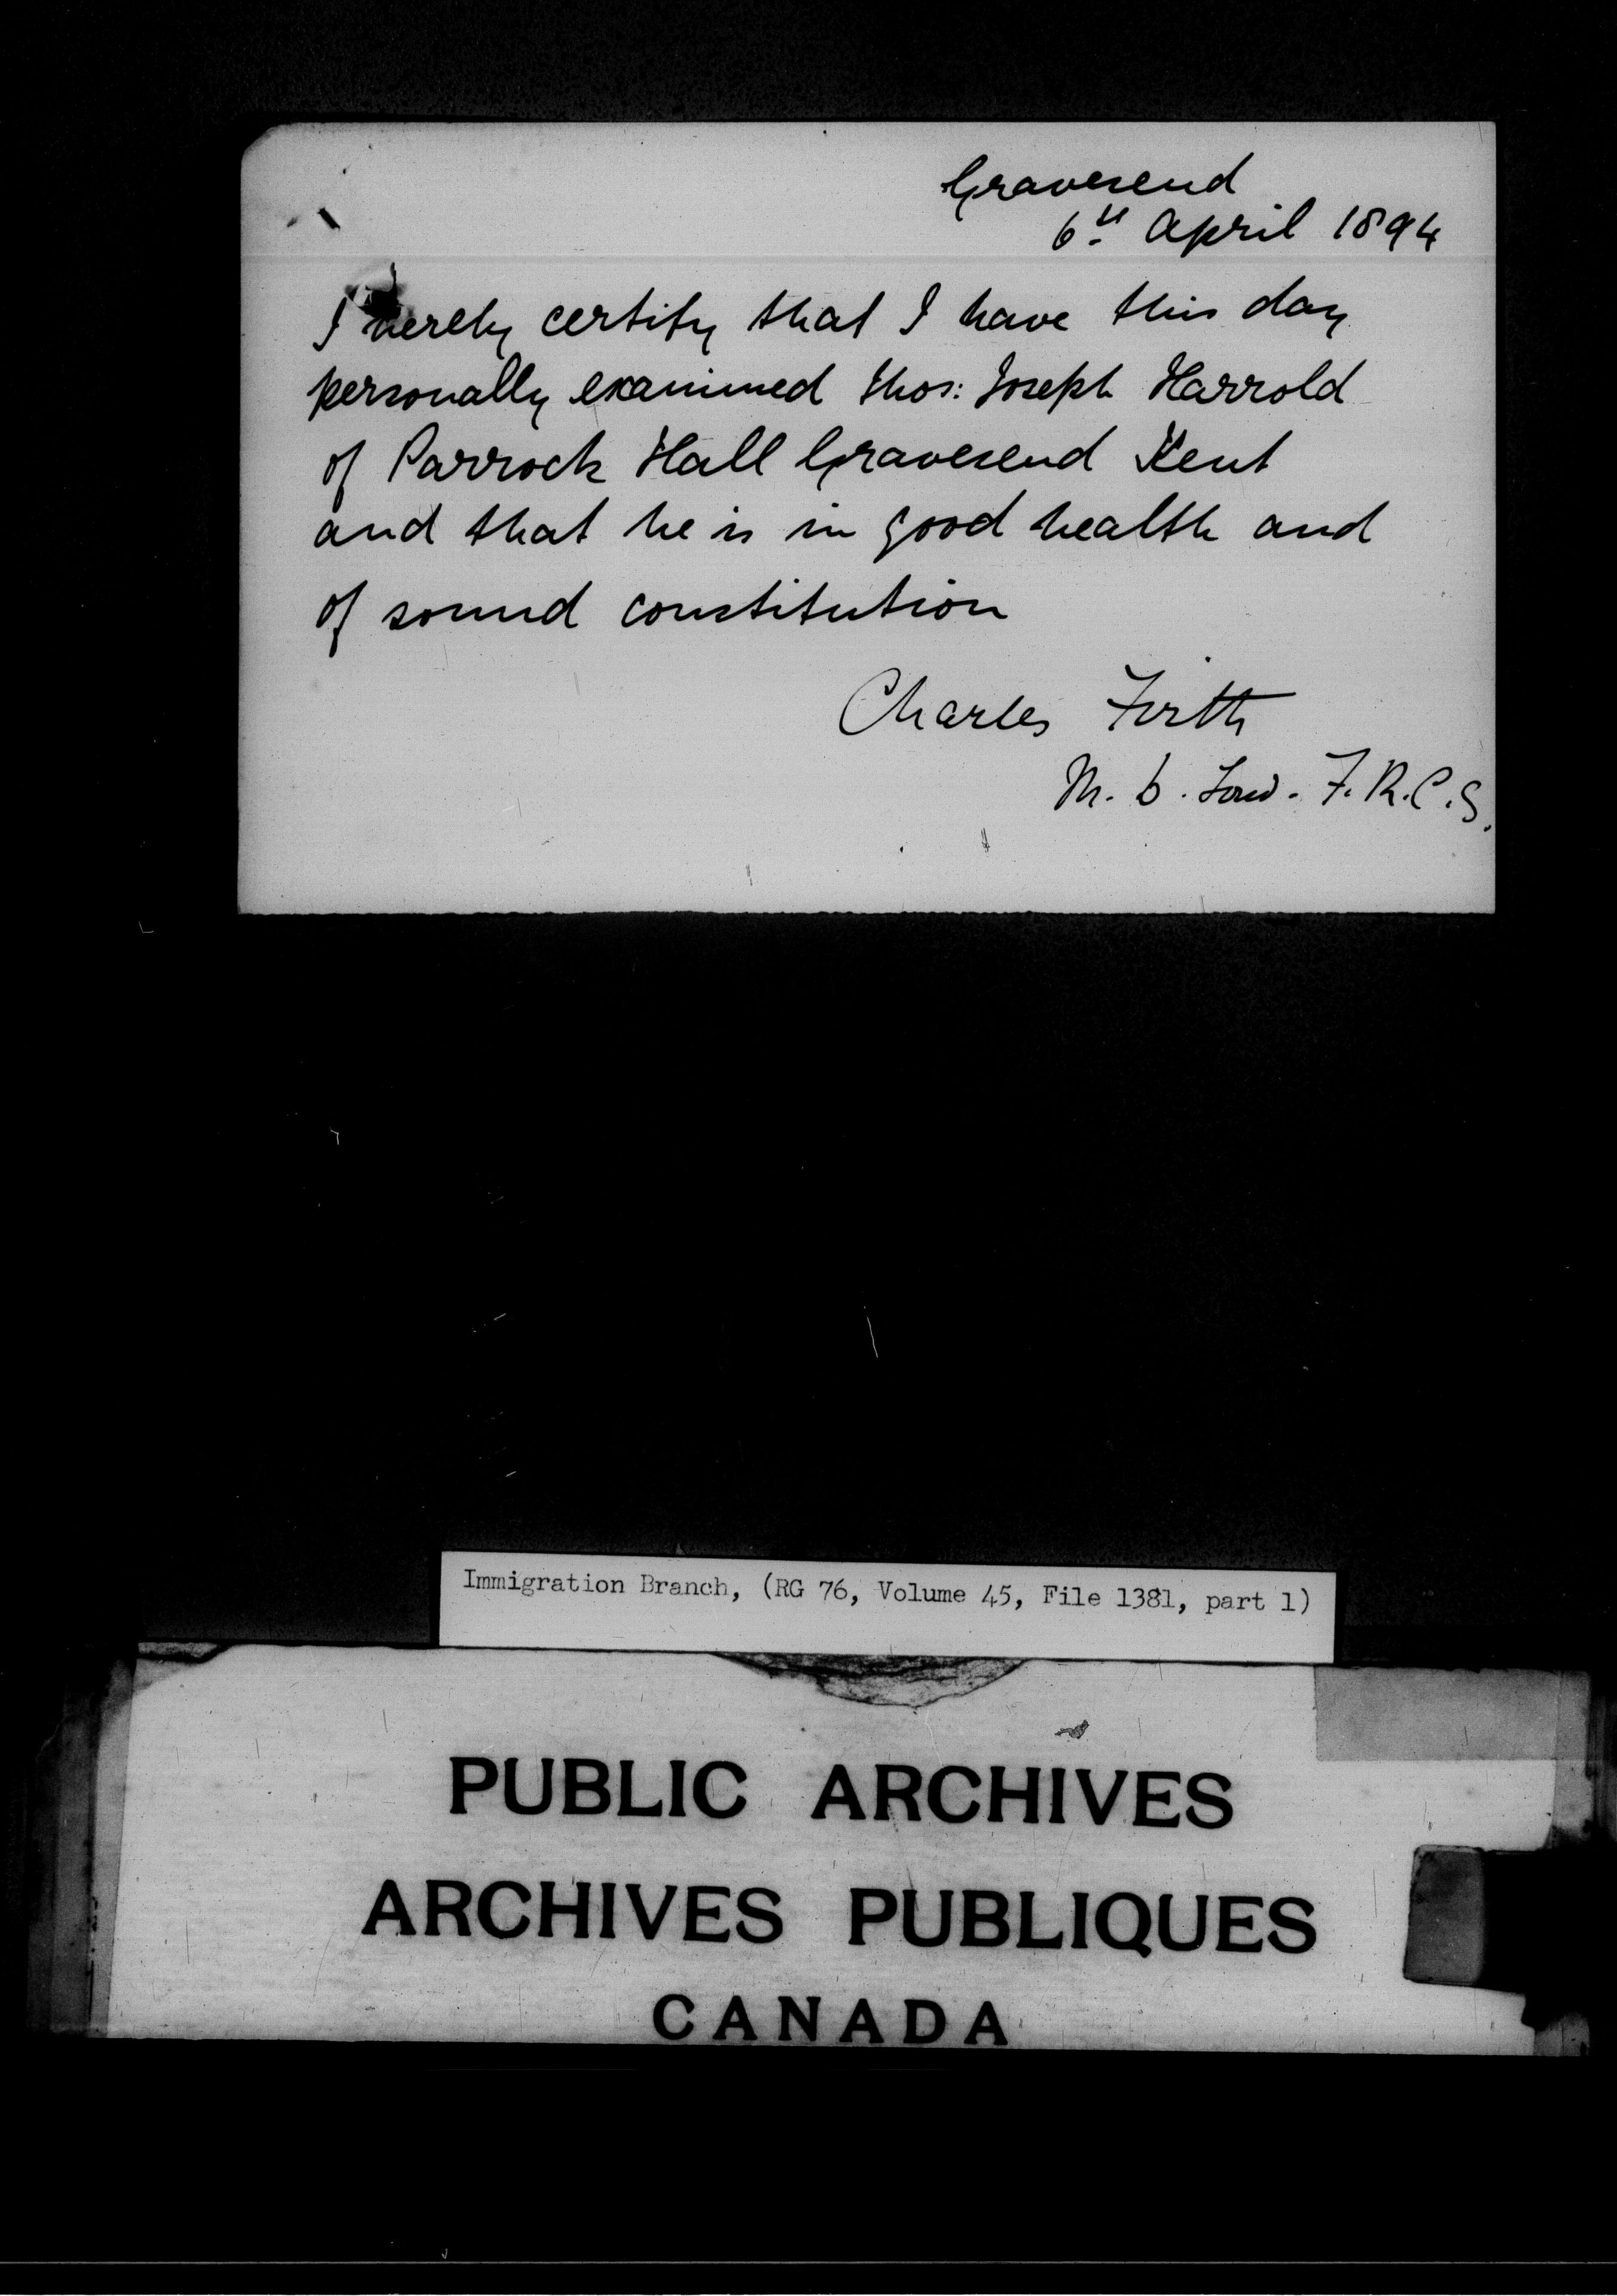 Gravesend
6th April 1894
I hereby certify that I have this day
personally examined Thos: Joseph Harrold
of Parrock Hall Gravesend Kent
and that he is in good health and
of sound constitution
Charles Firth
M. D. Lond. F.R.C.S.
Immigration Branch, (RG 76, Volume 45, File 1381, part 1)
PUBLIC ARCHIVES
ARCHIVES PUBLIQUES
CANADA